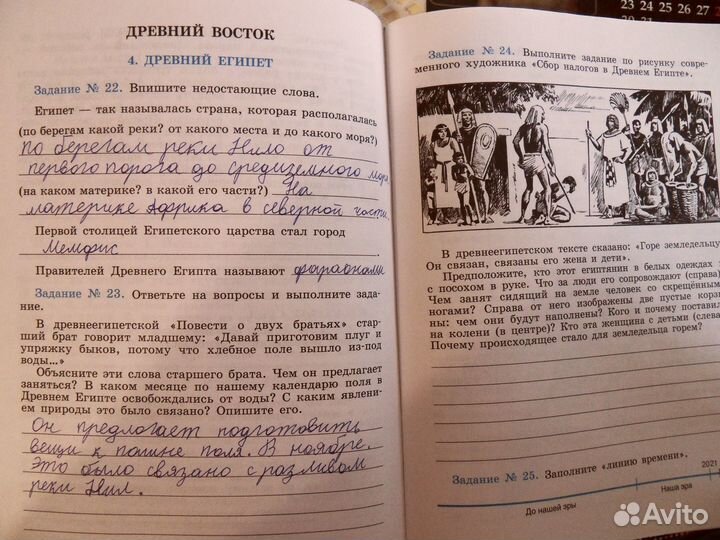 ДРЕВНИЙ ВОСТОК
4. ДРЕВНИЙ ЕГИПЕТ
Задание № 22. Впишите недостающие слова.
Египет — так называлась страна, которая располагалась
(по берегам какой реки? от какого места и до какого моря?)
По берегам реки Нила от
первого порога до средиземного моря
(на каком материке? в какой его части?) На
материке Африка в северной части.
Первой столицей Египетского царства стал город
Мемфис
Правителей Древнего Египта называют фараонами
Задание № 23. Ответьте на вопросы и выполните зада-
ние.
В древнеегипетской «Повести о двух братьях» стар-
ший брат говорит младшему: «Давай приготовим плуг и
упряжку быков, потому что хлебное поле вышло из-под
воды...»
Объясните эти слова старшего брата. Чем он предлагает
заняться? В каком месяце по нашему календарю поля в
Древнем Египте освобождались от воды? С каким явлени-
ем природы это было связано? Опишите его.
Он предлагает подготовить
вещи к пашне поля. В ноябре.
Это было связано с разливом
реки Нил.
23 24 25 26 27
Задание № 24. Выполните задание по рисунку совре-
менного художника «Сбор налогов в Древнем Египте».
В древнеегипетском тексте сказано: «Горе земледельцу
Он связан, связаны его жена и дети».
Предположите, кто этот египтянин в белых одеждах
с посохом в руке. Что за люди его сопровождают (справа)
Чем занят сидящий на земле человек со скрещённым
ногами? Справа от него изображены две пустые корзи
ны: чем они будут наполнены? Кого и почему постави
на колени (в центре)? Кто эта женщина с детьми (слева
Почему происходящее стало для земледельца горем?
Задание № 25. Заполните «линию времени».
2021
Наша эра
До нашей эры
Avito